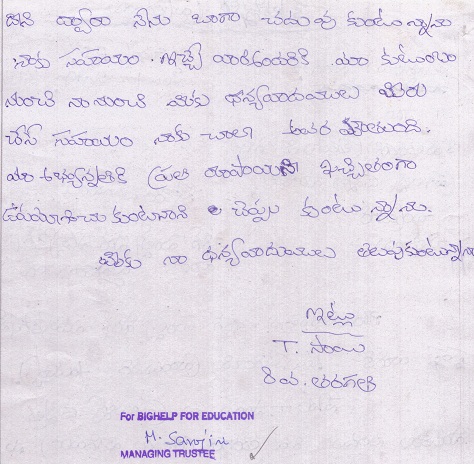 దాని ద్వారా నేను బాగా చదువు కుంటున్నాను
నాకు సహాయం ఇచ్చే వారందరికి మా కుటుంబం
నుంచి నా నుంచి మీకు ధన్యవాదములు మీరు
చేసే సహాయం నాకు చాలా అవసరమౌతుంది.
మా ప్రతి రూపాయిని ఖచ్చితంగా
ఉపయోగించు కుంటానని చెప్పు కుంటున్నాను.
మీకు నా ధన్యవాదములు తెలుపుకుంటున్నాను
ఇట్లు
T. సాయి
8 వ. తరగతి
For BIGHELP FOR EDUCATION
M. Sarojini
MANAGING TRUSTEE